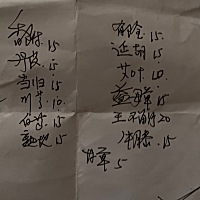 香附 15
丹皮 15
当归 15
川芎 10
白芍 15
熟地 15
郁金 15
延胡 15
艾叶 10
益母草 15
王不留行 20
牛膝 15
甘草 5